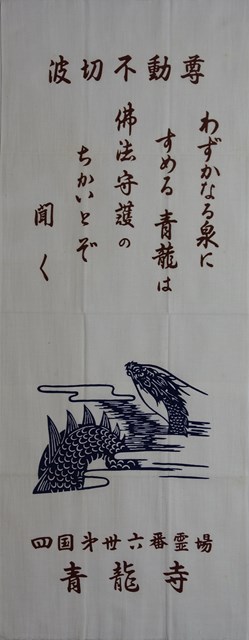 波切不動尊
わずかなる泉に
すめる青龍は
佛法守護の
ちかいとぞ
聞く
四国第卅六番霊場
青龍寺